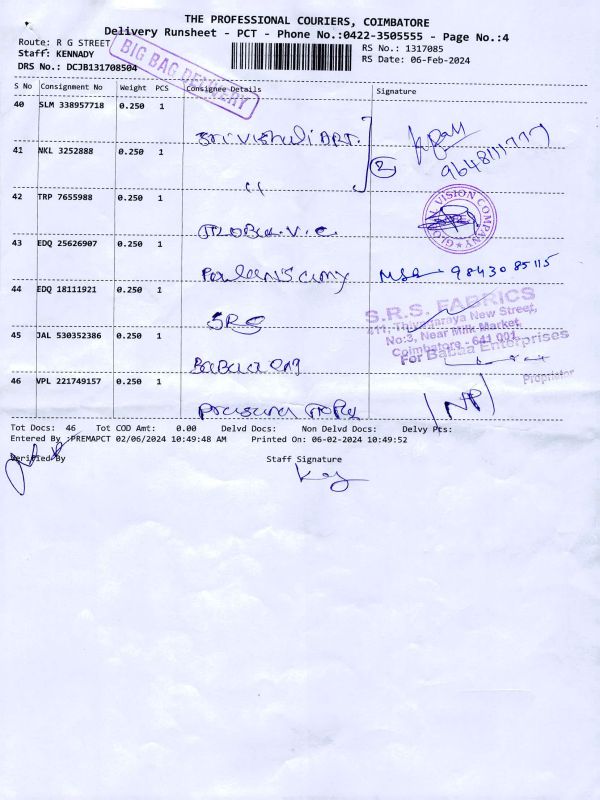 THE PROFESSIONAL COURIERS, COIMBATORE
Delivery Runsheet - PCT - Phone No.:0422-3505555 - Page No.:4
Route: R G STREET
RS No.: 1317085
Staff: KENNADY
RS Date: 06-Feb-2024
DRS No.: DCJB131708504
BIG BAG DELIVERY
S No Consignment No Weight PCS Consignee Details Signature
40 SLM 338957718 0.250 1
9648111777
41 NKL 3252888 0.250 1 "
2
42 TRP 7655988 0.250 1
GLOBAL VISION COMPANY
43 EDQ 25626907 0.250 1
9843085115
44 EDQ 18111921 0.250 1 SRS
S.R.S. FABRICS
411, Thiyagaraya New Street,
No:3, Near Milk Market,
Coimbatore - 641 001.
45 JAL 530352386 0.250 1
For Babaa Enterprises
Proprietor
46 VPL 221749157 0.250 1
NP
Tot Docs: 46 Tot COD Amt: 0.00 Delvd Docs: Non Delvd Docs: Delvy Pcs:
Entered By :PREMAPCT 02/06/2024 10:49:48 AM Printed On: 06-02-2024 10:49:52
Verified By Staff Signature